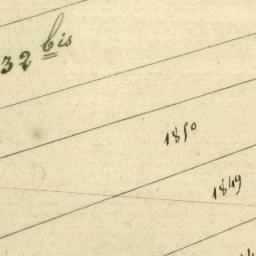 32 bis
1850
1849